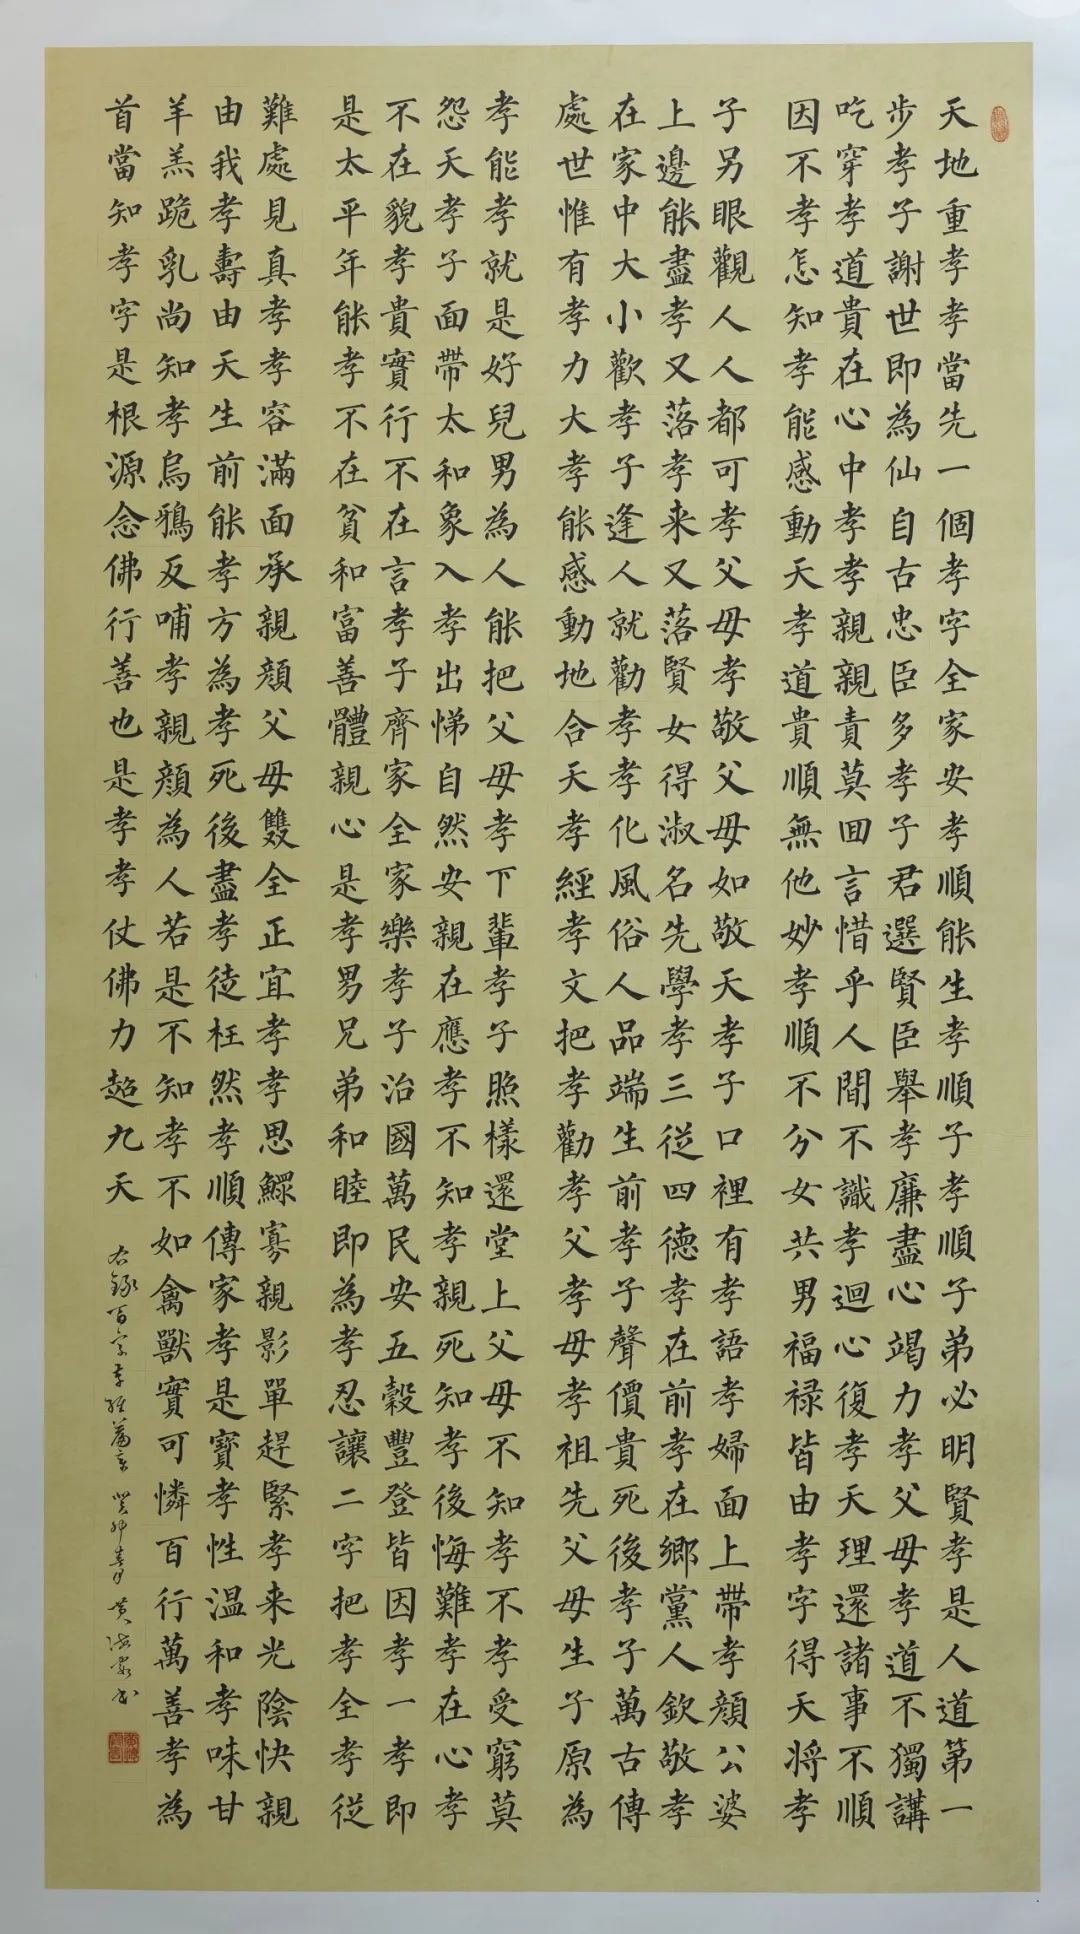 天地重孝孝當先一個孝字全家安孝順能生孝順子孝順子弟必明賢孝是人道第一
步孝子謝世即為仙自古忠臣多孝子君選賢臣舉孝廉盡心竭力孝父母孝道不獨講
吃穿孝道貴在心中孝孝親親責莫回言惜乎人間不識孝迴心復孝天理還諸事不順
因不孝怎知孝能感動天孝道貴順無他妙孝順不分女共男福禄皆由孝字得天将孝
子另眼觀人人都可孝父母孝敬父母如敬天孝子口裡有孝語孝婦面上帶孝顔公婆
上邊能盡孝又落孝来又落賢女得淑名先學孝三從四德孝在前孝在鄉黨人欽敬孝
在家中大小歡孝子逢人就勸孝孝化風俗人品端生前孝子聲價貴死後孝子萬古傳
處世惟有孝力大孝能感動地合天孝經孝文把孝勸孝父孝母孝祖先父母生子原為
孝能孝就是好兒男為人能把父母孝下輩孝子照樣還堂上父母不知孝不孝受窮莫
怨天孝子面帶太和象入孝出悌自然安親在應孝不知孝親死知孝後悔難孝在心孝
不在貌孝貴實行不在言孝子齊家全家樂孝子治國萬民安五穀豐登皆因孝一孝即
是太平年能孝不在貧和富善體親心是孝男兄弟和睦即為孝忍讓二字把孝全孝從
難處見真孝孝容滿面承親顔父母雙全正宜孝孝思鰥寡親影單趕緊孝来光陰快親
由我孝壽由天生前能孝方為孝死後盡孝徒枉然孝順傳家孝是寶孝性温和孝味甘
羊羔跪乳尚知孝烏鴉反哺孝親顔為人若是不知孝不如禽獸實可憐百行萬善孝為
首當知孝字是根源念佛行善也是孝孝仗佛力超九天
右錄百字孝經篇章 癸卯春月 黄海 書